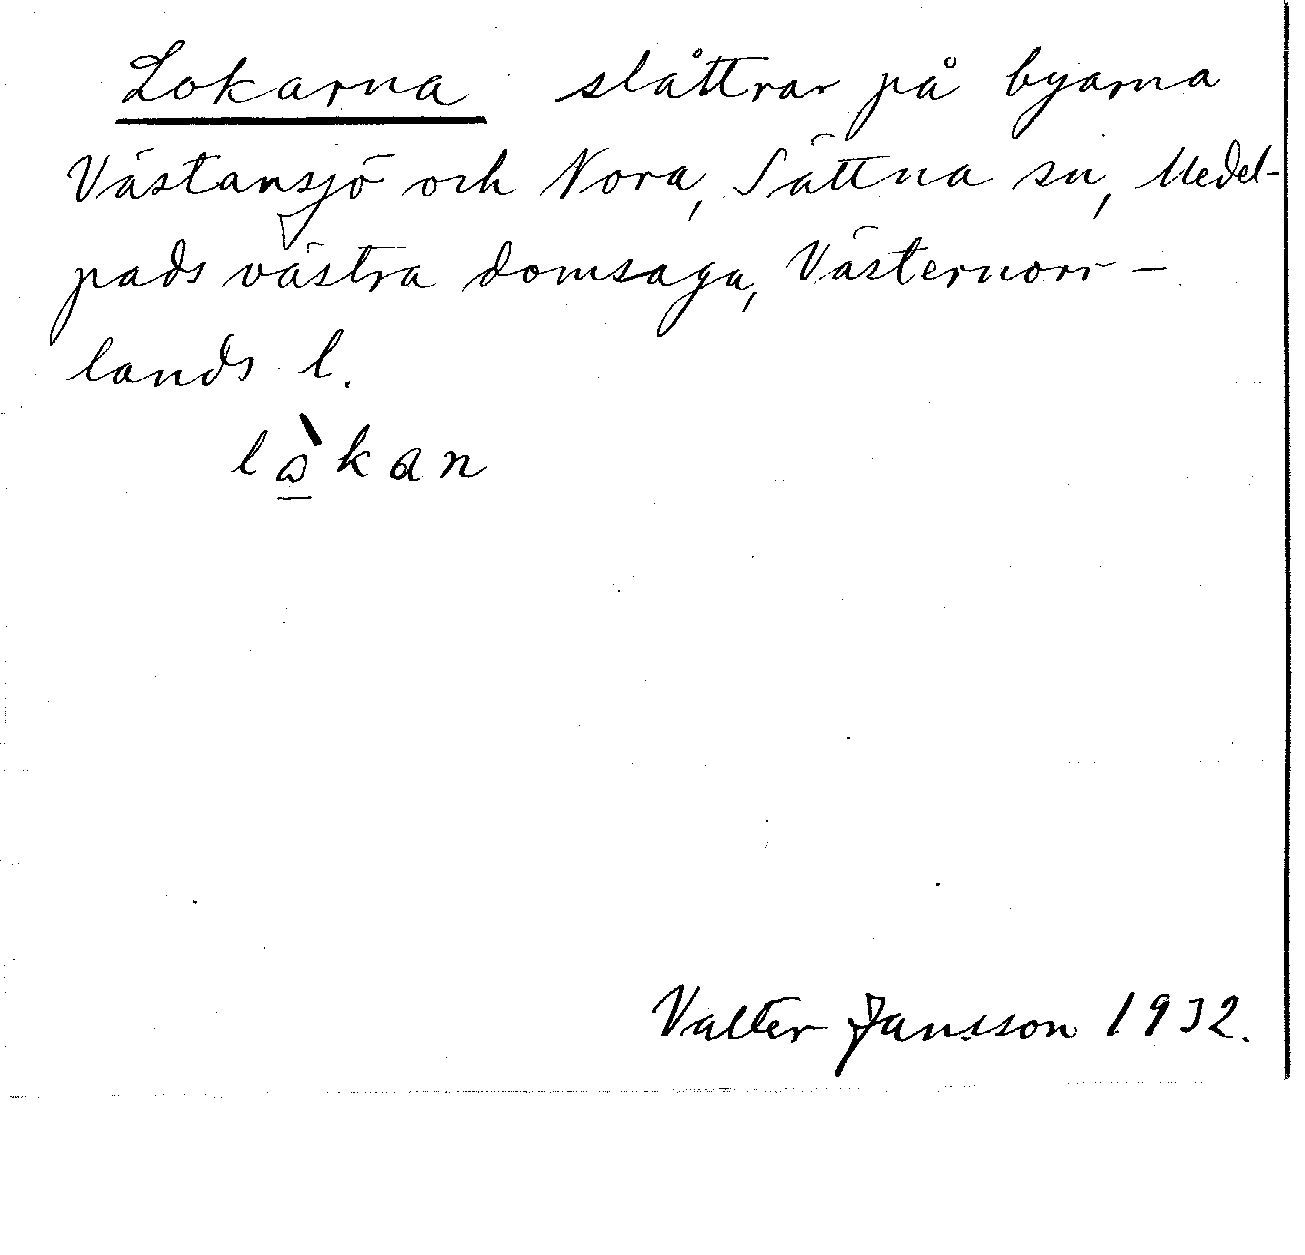 Lokarna slåttrar på byarna
Västansjö och Nora, Sättna sn, Medel-
pads västra domsaga, Västernorr-
lands l.
lòkan
Valter Jansson 1932.